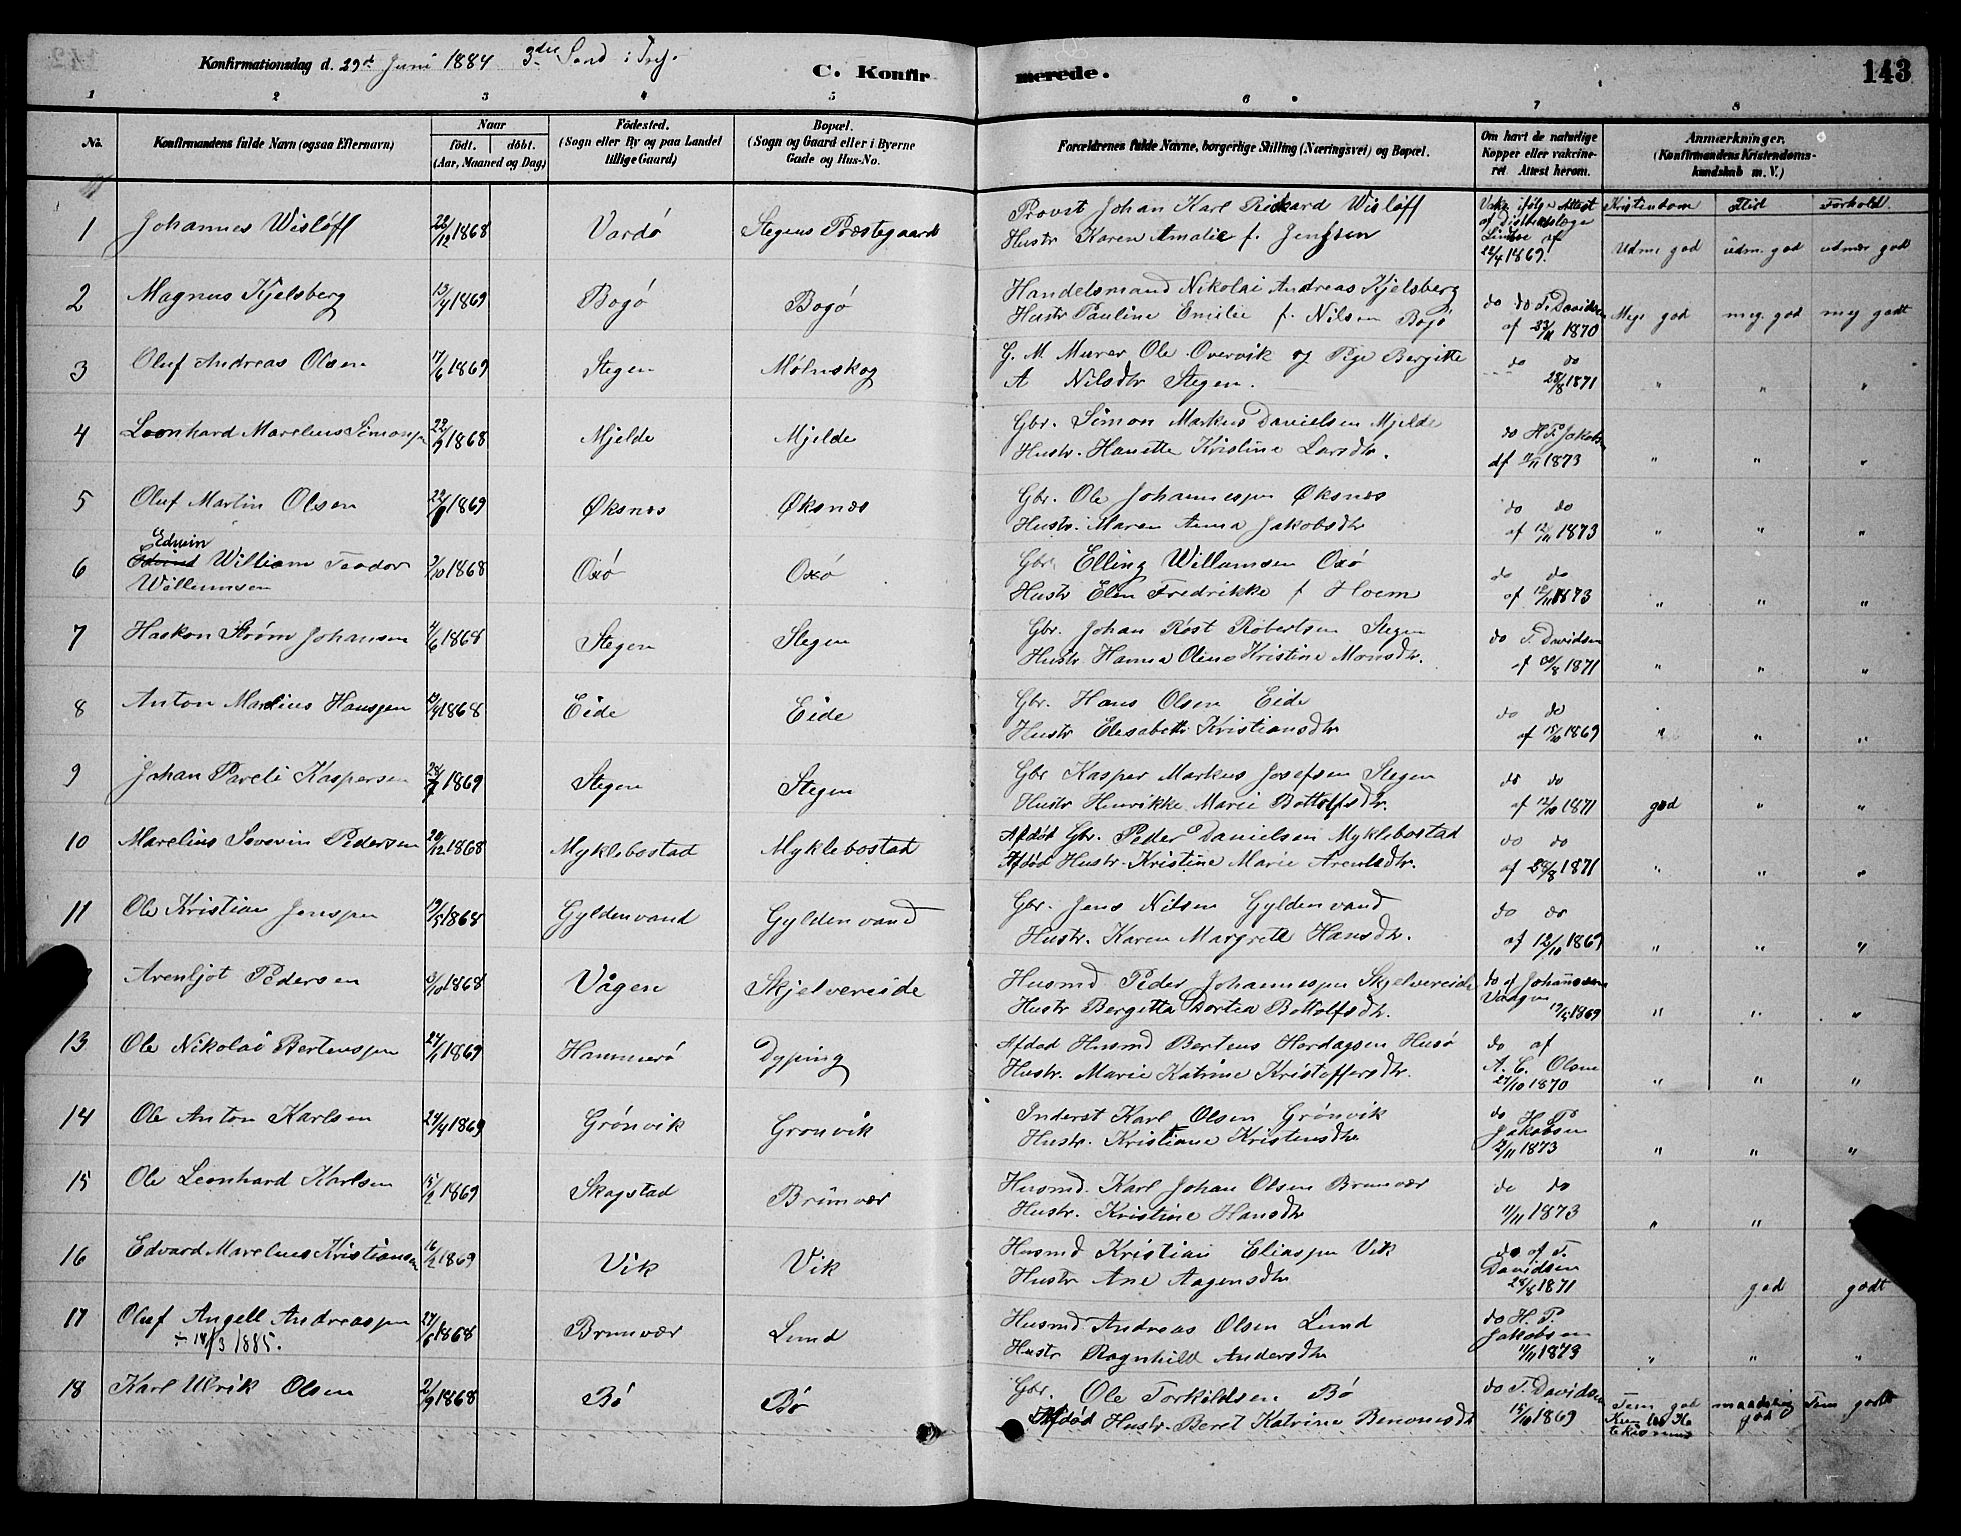 Konfirmationsdag d. 29de Juni 1884 3die Sønd i Tref.
C. Konfirmerede.
143
1 2 3 4 5 6 7 8
No.
Konfirmandens fulde Navn (ogsaa Efternavn)
Naar
født. døbt.
(Aar, Maaned og Dag)
Fødested.
(Sogn eller By og paa Landet tillige Gaard)
Bopæl.
(Sogn og Gaard eller i Byerne Gade og Hus-No.
Forældrenes fulde Navne, borgerlige Stilling (Næringsvei) og Bopæl.
Om havt de naturlige Kopper eller vakcineret Attest herom.
Anmærkninger.
(Konfirmandens Kristendomskundskab m. V.)
Kristendom Flid Forhold.
1 Johannes Wisløff 22/12 1868 Vardø Stegens Præstegaard Provst Johan Karl Rickard Wisløff
Hustr Karen Amalie f. Jenssen
Vakc. ifølge Attest af Distriktslæge Lindoe af 22/4 1869. Udm. god udm. god udmær godt
2 Magnus Kjelsberg 13/4 1869 Bogø Bogø Handelsmand Nikolai Andreas Kjelsberg
Hustr Pauline Emilie f. Nilsen Bogø
do do T. Davidsen af 23/11 1870 Meg. god meg. god meg godt
3 Oluf Andreas Olsen 17/6 1869 Stegen Mølnskog G. M. Murer Ole Overvik og Pige Bergitte
A Nilsdtr Stegen.
do do 28/8 1871 " " "
4 Leonhard Marelius Simonsen 22/9 1868 Mjelde Mjelde Gbr. Simon Markus Danielsen Mjelde
Hustr. Hanette Kristine Larsdtr.
do H. P. Jakobsen af 11/11 1873 " " "
5 Oluf Martin Olsen 1869 Øksnes Øksnes Gbr. Ole Johannessen Øksnes
Hustr. Maren Anna Jakobsdtr
do do af 12/11 1873 " " "
Edwin
6 William Teodor 2/10 1868 Oxø Oxø Gbr Elling Willumsen Oxø
Willumsen
Hustr Elen Fredrikke f Hoem
do do af 12/11 1873 " " "
7 Haakon Strøm Johansen 4/6 1868 Stegen Stegen Gbr. Johan Røst Robertsen Stegen
Hustr. Hanna Oline Kristine Monsdtr.
do T. Davidsen af 30/8 1871 " " "
8 Anton Marelius Hanssen 1868 Eide Eide Gbr. Hans Olsen Eide
Hustr Elesabeth Kristiansdtr
do do af 15/10 1869 " " "
9 Johan Pareli Kaspersen 1869 Stegen Stegen Gbr Kasper Markus Josefsen Stegen
Hustr Henrikke Marie Bottolfsdtr.
do do af 12/10 1871 god " "
10 Marelius Severin Pedersen 20/12 1868 Myklebostad Myklebostad Afdød Gbr. Peder Danielsen Myklebostad
Afdød Hustr. Kristine Marie Arentsdtr.
do do af 28/8 1871 " " "
11 Ole Kristian Jenssen 19/5 1868 Gyldenvand Gyldenvand Gbr. Jens Nilsen Gyldenvand
Hustr. Karen Margrete Hansdtr.
do do af 12/10 1869 " " "
Arenljot Pedersen 3/10 1868 Vågen Skjelvereide Husmd Peder Johannessen Skjelvereide
Hustr Bergitta Dortea Bottolfsdtr.
do af Johanssen Vaagen 1869 " " "
13 Ole Nikolai Bertenssen 1869 Hammerø Dyping Afdød Husmd Bertens Herdagsen Husø
Hustr. Marie Katrine Kristoffersdtr.
do af A. C. Olsen 27/10 1870 " " "
14 Ole Anton Karlsen 24/4 1869 Grønvik Grønvik Inderst Karl Olsen Grønvik
Hustr. Kristiane Kristensdtr
do H. P. Jakobsen 2/11 1873 " " "
15 Ole Leonhard Karlsen 15/2 1869 Skagstad Brunvær Husmd. Karl Johan Olsen Brunvær
Hustr. Kristine Hansdtr
do do 11/11 1873 " "
16 Edvard Marelius Kristiansen 16/2 1869 Vik Vik Husmd Kristian Eliassen Vik
Hustr Ane Aagensdtr
do af T. Davidsen 28/8 1871 god godt
17 Oluf Angell Andreassen 27/6 1868 Brunvær Lund Husmd. Andreas Olsen Lund
÷ 18/3 1885.
Hustr Ragnhild Andersdtr
do H. P. Jakobsen 11/11 1873 " " "
18 Karl Ulrik Olsen 2/9 1868 Bø Bø Gbr. Ole Torkildsen Bø
Afdød Hustr. Beret Katrine Benonisdtr
do T. Davidsen 15/10 1869 Tem god maadelig god Tem godt